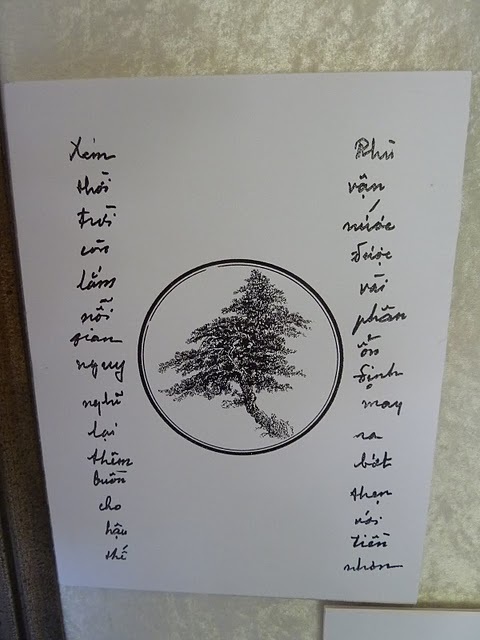 Phù
vận
nước
được
vài
phần
ổn
định
may
ra
bớt
thẹn
với
tiền
nhơn
Xem
thời
trời
còn
lắm
nỗi
gian
nguy
nghĩ
lại
thêm
buồn
cho
hậu
thế